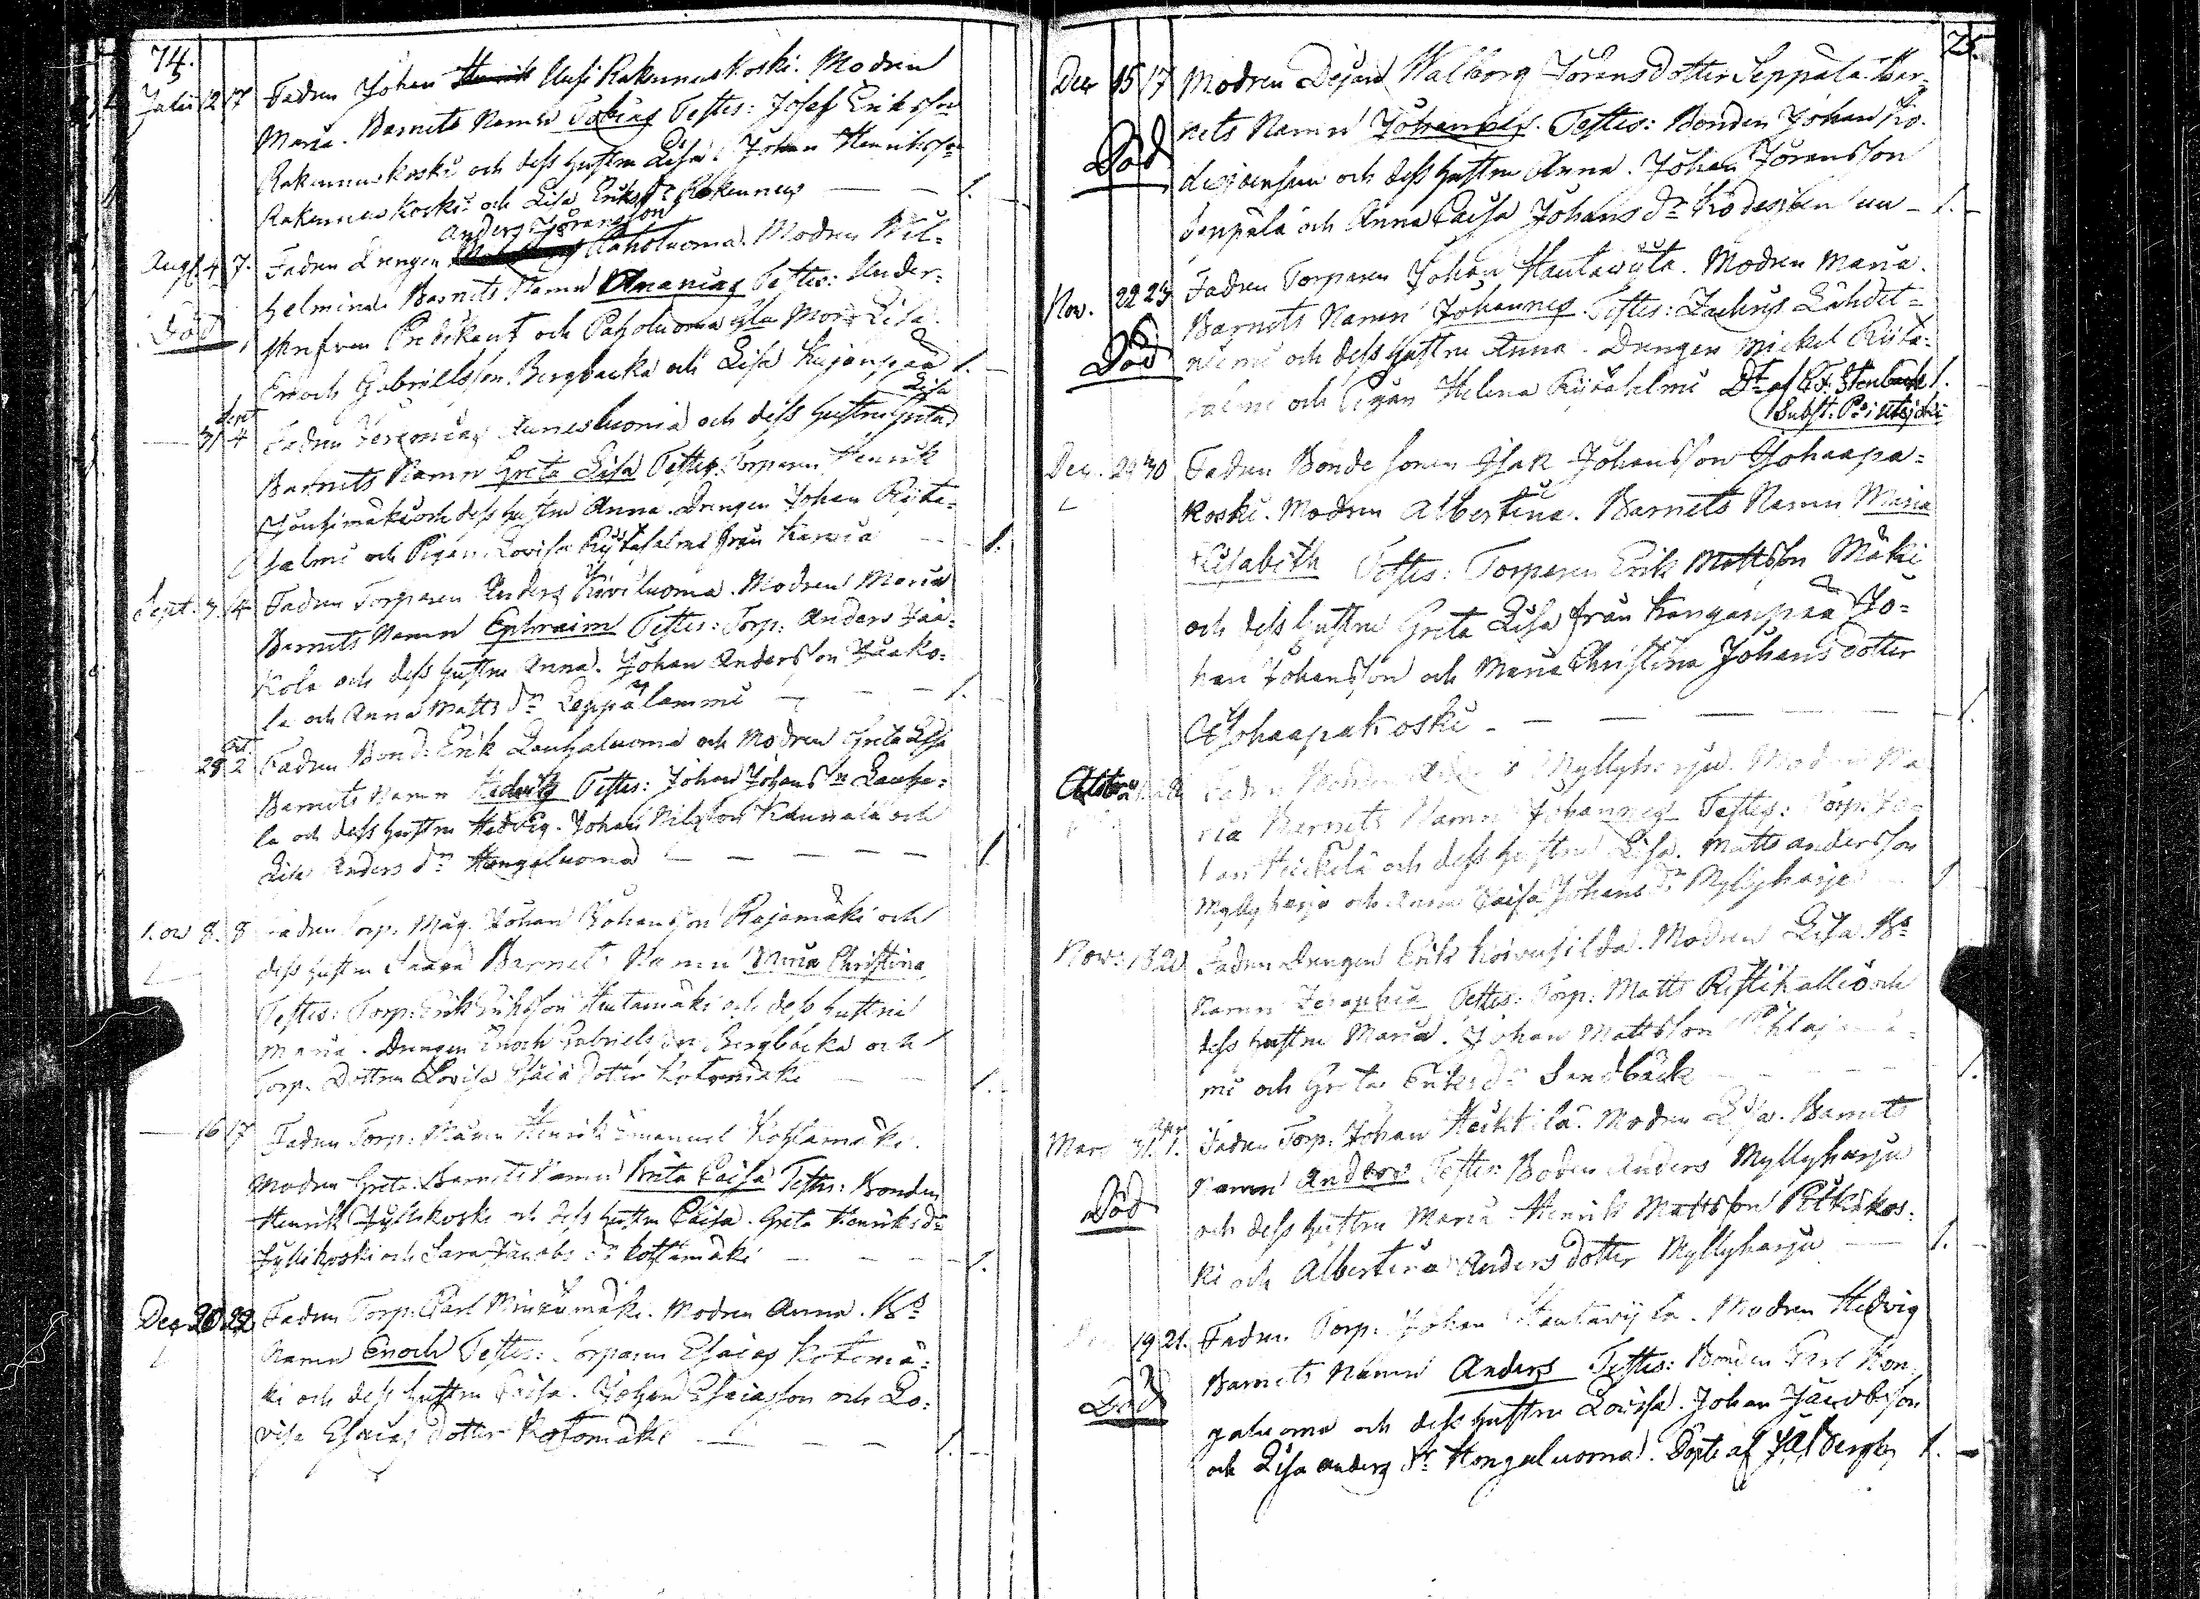 74.
Julii 2 7 Fadren Johan Uusi Rakennuskoski. Modren
Maria. Barnets Namn Tobias Testes: Josef Eriksson
Rakennuskoski och dess hustru Lisa. Johan Henriksson
Rakennuskoski och Lisa Eriks dr Rakennus — — 1.
Anders Jöransson
Aug. 4 7. Fadren Drengen Paholuoma. Modren Wil=
helmina. Barnets Namn Ananias Testes: Under=
Död
skrefven Predikant och Paholuoma Mor Lisa.
Enoch Gabrielsson Bergbacka och Lisa Kujanpää 1.
Sept Lisa
— 3 4 Fadren Jeremias Annesluoma och dess hustru Greta
Barnets Namn Greta Lisa Testes. Torparen Henrik
och dess hustru Anna. Drengen Johan Ryta=
salmi och Pigan Lovisa Rytisalmi från Karvia — 1.
Sept. 3. 4 Fadren Torparen Anders Kiviluoma. Modren Maria
Barnets Namn Ephraim Testes: Torp: Anders Jaa=
kola och dess hustru Anna. Johan Andersson Jaako=
la och Anna Matts dr Leppälammi — — — 1.
Oct.
28 2 Fadren Bond: Erik Lauhaluoma och Modren Greta Lisa
Barnets Namn Hedvig Testes: Johan Johansson Lauha=
la och dess hustru Hedvig. Johan Nilsson Kaurala och
Lisa Anders dr Hongaluoma — — — — 1.
Nov 8. 8 Fadren Torp. Måg. Johan Johansson Rajamäki och
dess hustru Saara Barnets Namn Maria Christina
Testes: Torp: Erik Eriksson Hautamäki och dess hustru
Maria. Drengen Enoch Gabrielsson Bergbacka och
Torp. Dottren Lovisa Esaia dotter Kotomäki — — 1.
— 16 17 Fadren Torp: Henrik Emanuel Kohlamäki.
Modren Greta. Barnets Namn Brita Caisa Testes: Bonden
Henrik Jyllikoski och dess hustru Caisa. Greta Henriks dr
Jyllikoski och Sara Jacobs dr Kohlamäki — — — 1.
Dec 20 22 Fadren Torp: Carl Modren Anna. Bs
Namn Enoch Testes: Torparen Esaias Kotomä=
ki och dess hustru Caisa. Johan Esaiasson och Lo=
visa Esaias dotter Kotomäki — — — 1. —
75.
Dec 15 17 Modren Pejan Walborg Jörans dotter Seppälä. Bar=
nets Namn Johannes. Testes: Bonden Johan Ko=
Död
och dess hustru Anna. Johan Jöransson
Seppälä och Anna Caisa Johans dr — 1. —
Nov. 22 23 Fadren Torparen Johan Hautawiita. Modren Maria.
Barnets Namn Johannes. Testes: Zachris Lähdet=
Död
niemi och dess hustru Anna. Drengen Mickel Riita=
salmi och Pigan Helena Dt. af C. F. Stenbäck 1.
Subst. Pr
Dec. 29 30 Fadren Bonde sonen Isak Johansson Ojohaapa=
koski. Modren Albertina. Barnets Namn Maria
Elisabeth Testes: Torparen Erik Mattsson Mäki
och dess hustru Greta Lisa från Kangaspää Jo=
han Johansson och Maria Christina Johans dotter
Ojohaapakoski — — — — 1.
Fadren Bonden Anders Myllyharju. Modren Ma=
ria Barnets Namn Johannes Testes: Torp: Jo=
han Heikkilä och dess hustru Lisa. Matts Andersson
Myllyharju och Anna Caisa Johans dr Myllyharju — 1
Nov: 18 20 Fadren Drengen Erik Koivusilda. Modren Lisa. Bs
Namn Testes: Torp: Matts Ristikallio och
dess hustru Maria. Johan Mattsson Pihlaja=
mi och Greta Eriks dr Sandbäck — — — 1.
Mars 31 1. Fadren Torp: Johan Heikkilä. Modren Lisa. Barnets
Namn Anders Testes: Boden Anders Myllyharju
Död
och dess hustru Maria. Henrik Mattsson Pitkäkos=
ki och Albertina Anders dotter Myllyharju — 1. —
19 21. Fadren Torp: Johan Hautawijta. Modren Hedvig
Barnets Namn Anders Testes: Bonden Carl Hon=
Död
galuoma och dess hustru Lovisa. Johan Jacobsson
och Lisa Anders dr Hongaluoma. Döpte af 1. —